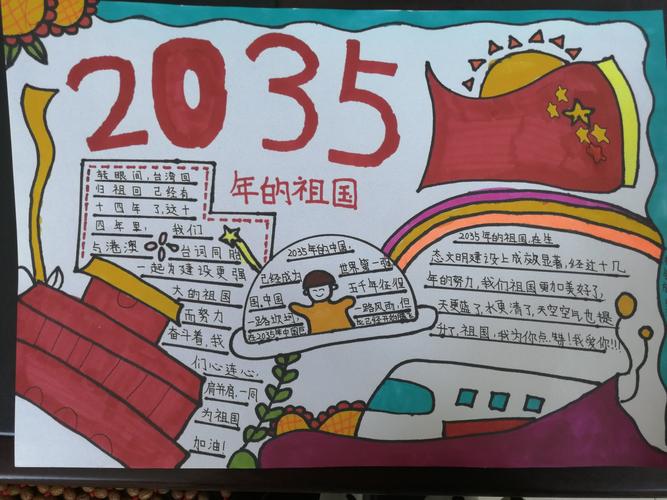 2035
年的祖国
转眼间，台湾回
归祖国已经有
十四年了，这十
四年里，我们
与港澳台词同胞
一起为建设更强
大的祖国
而努力
奋斗着，我
们心连心，
肩并肩，一同
为祖国
加油！
2035年的中国，
已经成为世界第一强
国，中国五千年征程
一路坎坷，一路风雨，但
在2035年中国已
2035年的祖国，在生
态文明建设上成效显著，经过十几
年的努力，我们祖国更加美好了，
天更蓝了，水更清了，天空空气也提
升了，祖国，我为你点赞！我爱你！！！